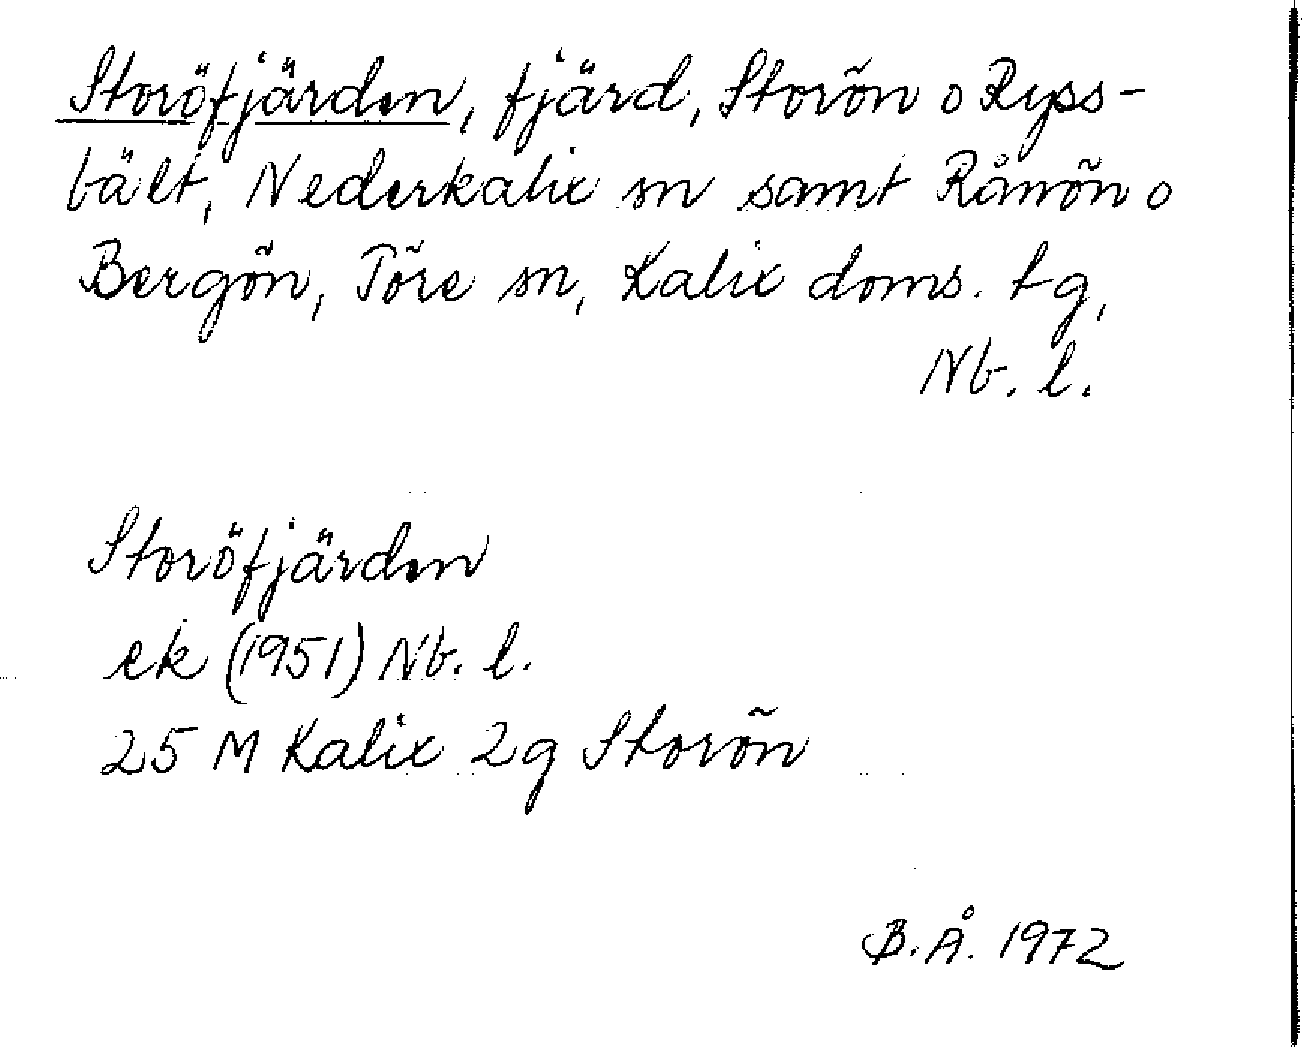 Storöfjärden, fjärd, Storön o Ryss-
bält, Nederkalix sn samt Rånön o
Bergön, Töre sn, Kalix doms. tg,
Nb. l.
Storöfjärden
ek (1951) Nb. l.
25 M Kalix 2g Storön
B.Å. 1972